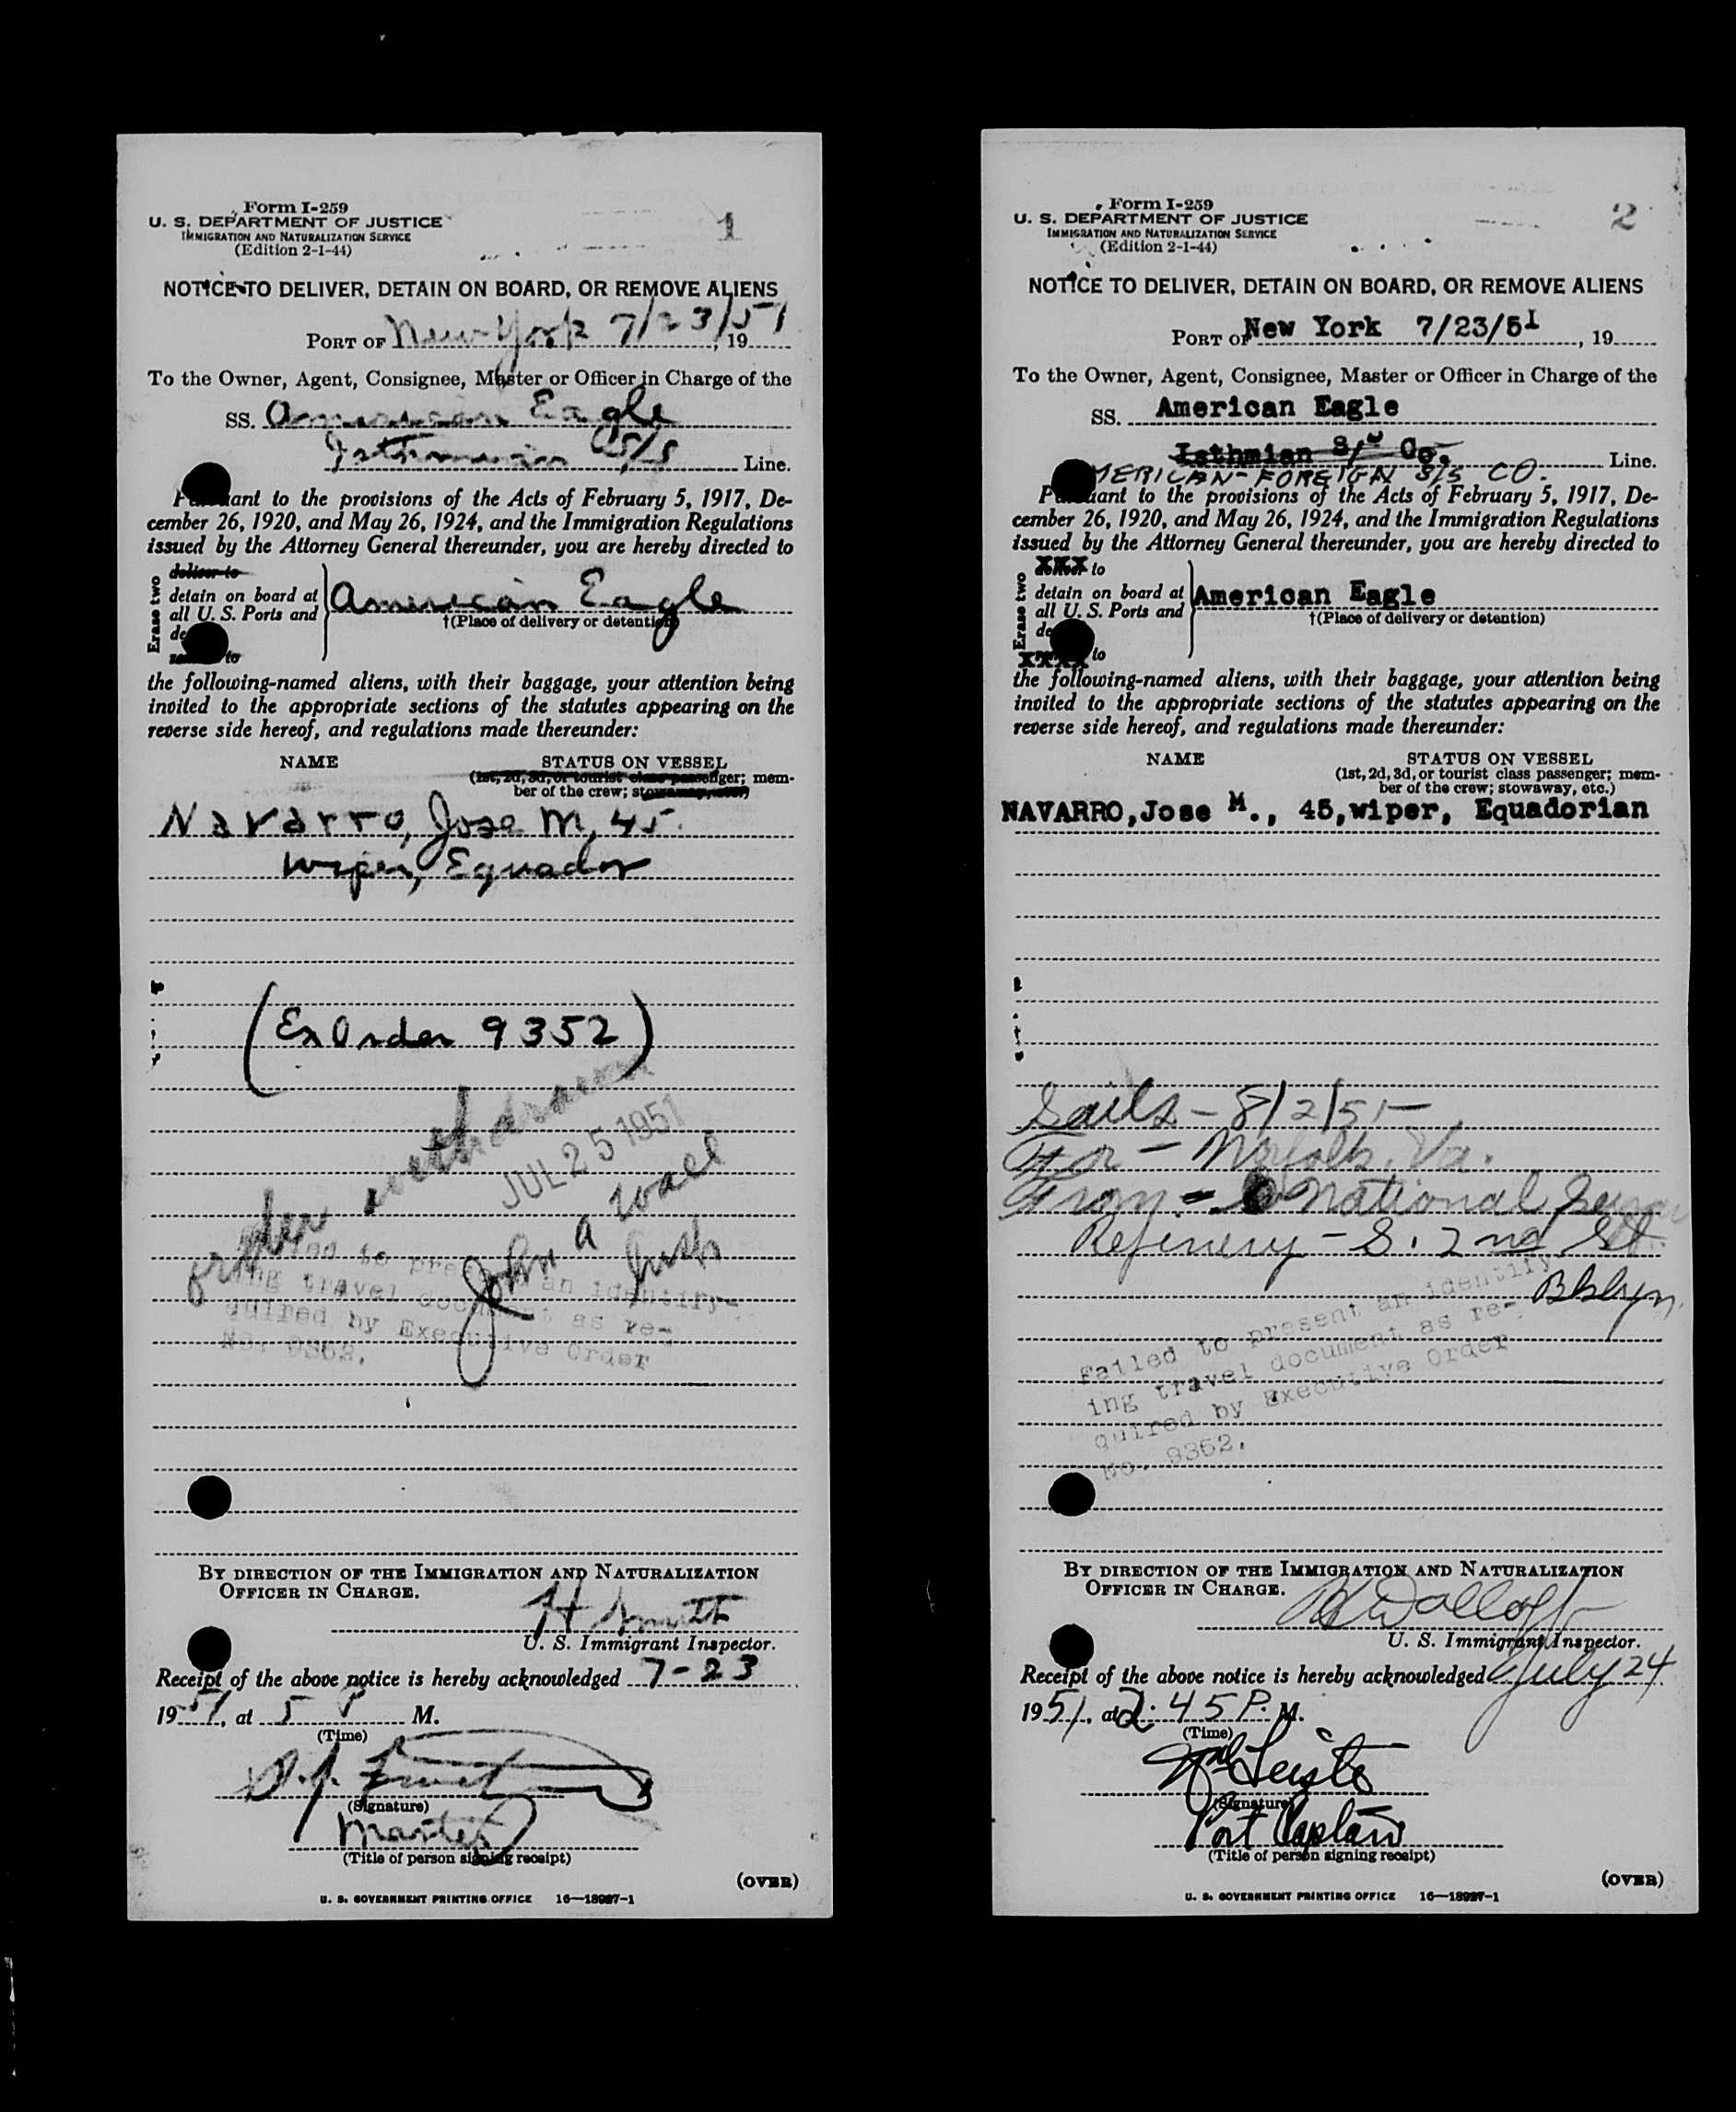 Form I-259
U. S. DEPARTMENT OF JUSTICE
IMMIGRATION AND NATURALIZATION SERVICE
(Edition 2-1-44)
1
NOTICE TO DELIVER, DETAIN ON BOARD, OR REMOVE ALIENS
PORT OF New York 7/23/51, 19
To the Owner, Agent, Consignee, Master or Officer in Charge of the
SS. American Eagle
Isthmian S/S Line.
Pursuant to the provisions of the Acts of February 5, 1917, De-
cember 26, 1920, and May 26, 1924, and the Immigration Regulations
issued by the Attorney General thereunder, you are hereby directed to
Erase two
deliver to
detain on board at
all U. S. Ports and
American Eagle
†(Place of delivery or detention)
to
the following-named aliens, with their baggage, your attention being
invited to the appropriate sections of the statutes appearing on the
reverse side hereof, and regulations made thereunder:
NAME STATUS ON VESSEL
(1st, 2d, 3d, or tourist class passenger; mem-
ber of the crew; stowaway, etc.)
Navarro, Jose M, 45.
Wiper, Equador
(Ex Order 9352)
order withdrawn
JUL 25 1951
John a
Failed to present an identify-
ing travel document as re-
quired by Executive Order
No. 9352.
BY DIRECTION OF THE IMMIGRATION AND NATURALIZATION
OFFICER IN CHARGE.
H Smith
U. S. Immigrant Inspector.
Receipt of the above notice is hereby acknowledged 7-23
1951, at 5 P M.
(Time)
(Signature)
Master
(Title of person signing receipt)
(OVER)
U. S. GOVERNMENT PRINTING OFFICE 16—18927-1
Form I-259
U. S. DEPARTMENT OF JUSTICE
IMMIGRATION AND NATURALIZATION SERVICE
(Edition 2-1-44)
2
NOTICE TO DELIVER, DETAIN ON BOARD, OR REMOVE ALIENS
PORT OF New York 7/23/51, 19
To the Owner, Agent, Consignee, Master or Officer in Charge of the
SS. American Eagle
Isthmian S/S Co. Line.
AMERICAN-FOREIGN S/S CO.
Pursuant to the provisions of the Acts of February 5, 1917, De-
cember 26, 1920, and May 26, 1924, and the Immigration Regulations
issued by the Attorney General thereunder, you are hereby directed to
Erase two
deliver to
detain on board at
all U. S. Ports and
American Eagle
†(Place of delivery or detention)
XXXX to
the following-named aliens, with their baggage, your attention being
invited to the appropriate sections of the statutes appearing on the
reverse side hereof, and regulations made thereunder:
NAME STATUS ON VESSEL
(1st, 2d, 3d, or tourist class passenger; mem-
ber of the crew; stowaway, etc.)
NAVARRO, Jose M., 45, wiper, Equadorian
Sails - 8/2/51
For - Norfolk, Va.
From - National
Refinery - S. 2nd St.
Bklyn.
Failed to present an identify
ing travel document as re-
quired by Executive Order
No. 9352.
BY DIRECTION OF THE IMMIGRATION AND NATURALIZATION
OFFICER IN CHARGE.
U. S. Immigrant Inspector.
Receipt of the above notice is hereby acknowledged July 24
1951, at 2:45 P. M.
(Time)
(Signature)
Port Captain
(Title of person signing receipt)
(OVER)
U. S. GOVERNMENT PRINTING OFFICE 16—18927-1